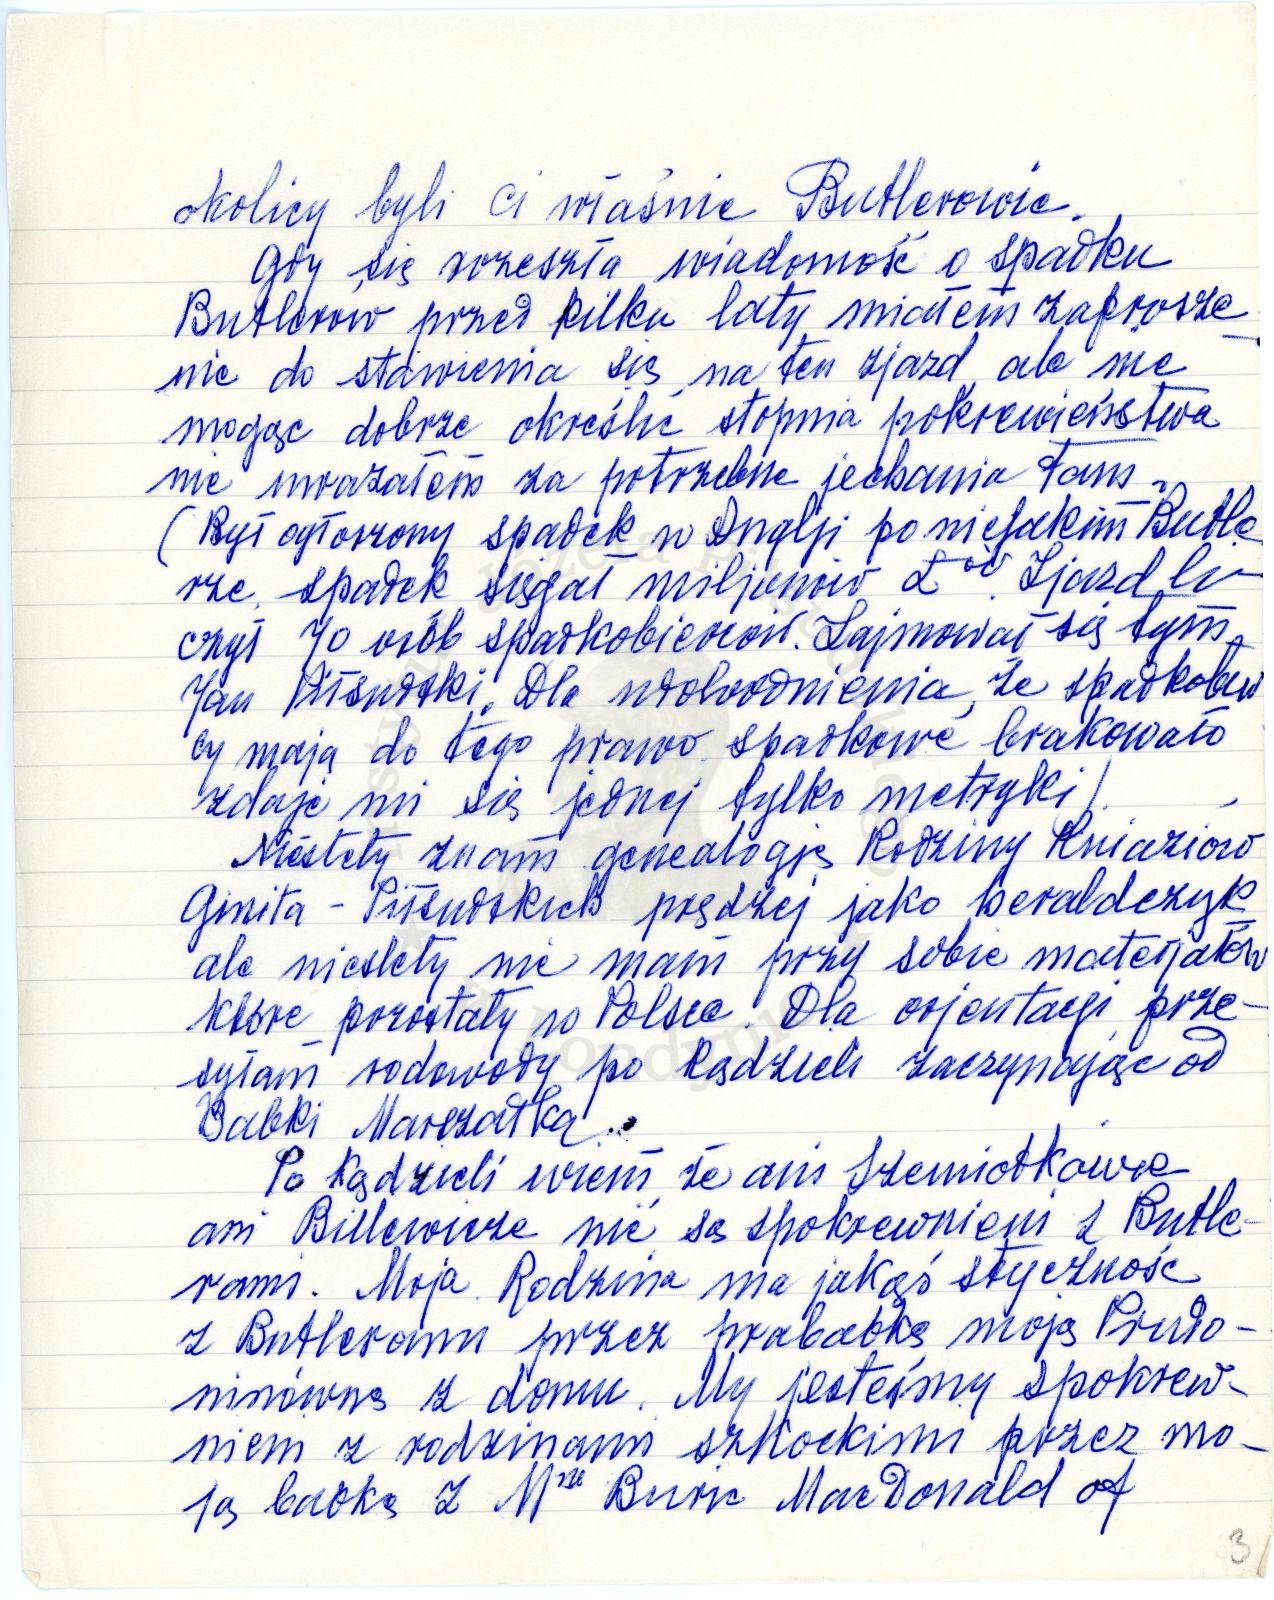 okolicy byli ci właśnie Butlerowie.
Gdy się rozeszła wiadomość o spadku
Butlerów przed kilku laty miałem zaprosze
nie do stawienia się na ten zjazd, ale nie
mogąc dobrze określić stopnia pokrewieństwa
nie uważałem za potrzebne jechania tam.
(Był ogłoszony spadek w Anglji po niejakim Butle
rze, spadek sięgał miljonów £ów. Zjazd li-
czył 70 osób spadkobierców. Zajmował się tym
Jan Piłsudski. Dla udowodnienia, że spadkobier
cy mają do tego prawo spadkowe brakowało
zdaje mi się jednej tylko metryki).
Niestety znam genealogję Rodziny Kniaziów
Ginita-Piłsudskich prędzej jako heraldczyk
ale niestety nie mam przy sobie materjałów
które pozostały w Polsce. Dla orjentacji prze-
syłam rodowody po kądzieli zaczynając od
Babki Marszałka.
Po kądzieli wiem że ani Szemiotkowie
ani Billewicze nie są spokrewnieni z Butle-
rami. Moja Rodzina ma jakąś styczność
z Butlerami przez prababkę moją Prużo-
ninównę z domu. My jesteśmy spokrew-
nieni z rodzinami szkockimi przez mo-
ją babkę z Mme Burie MacDonald of
3